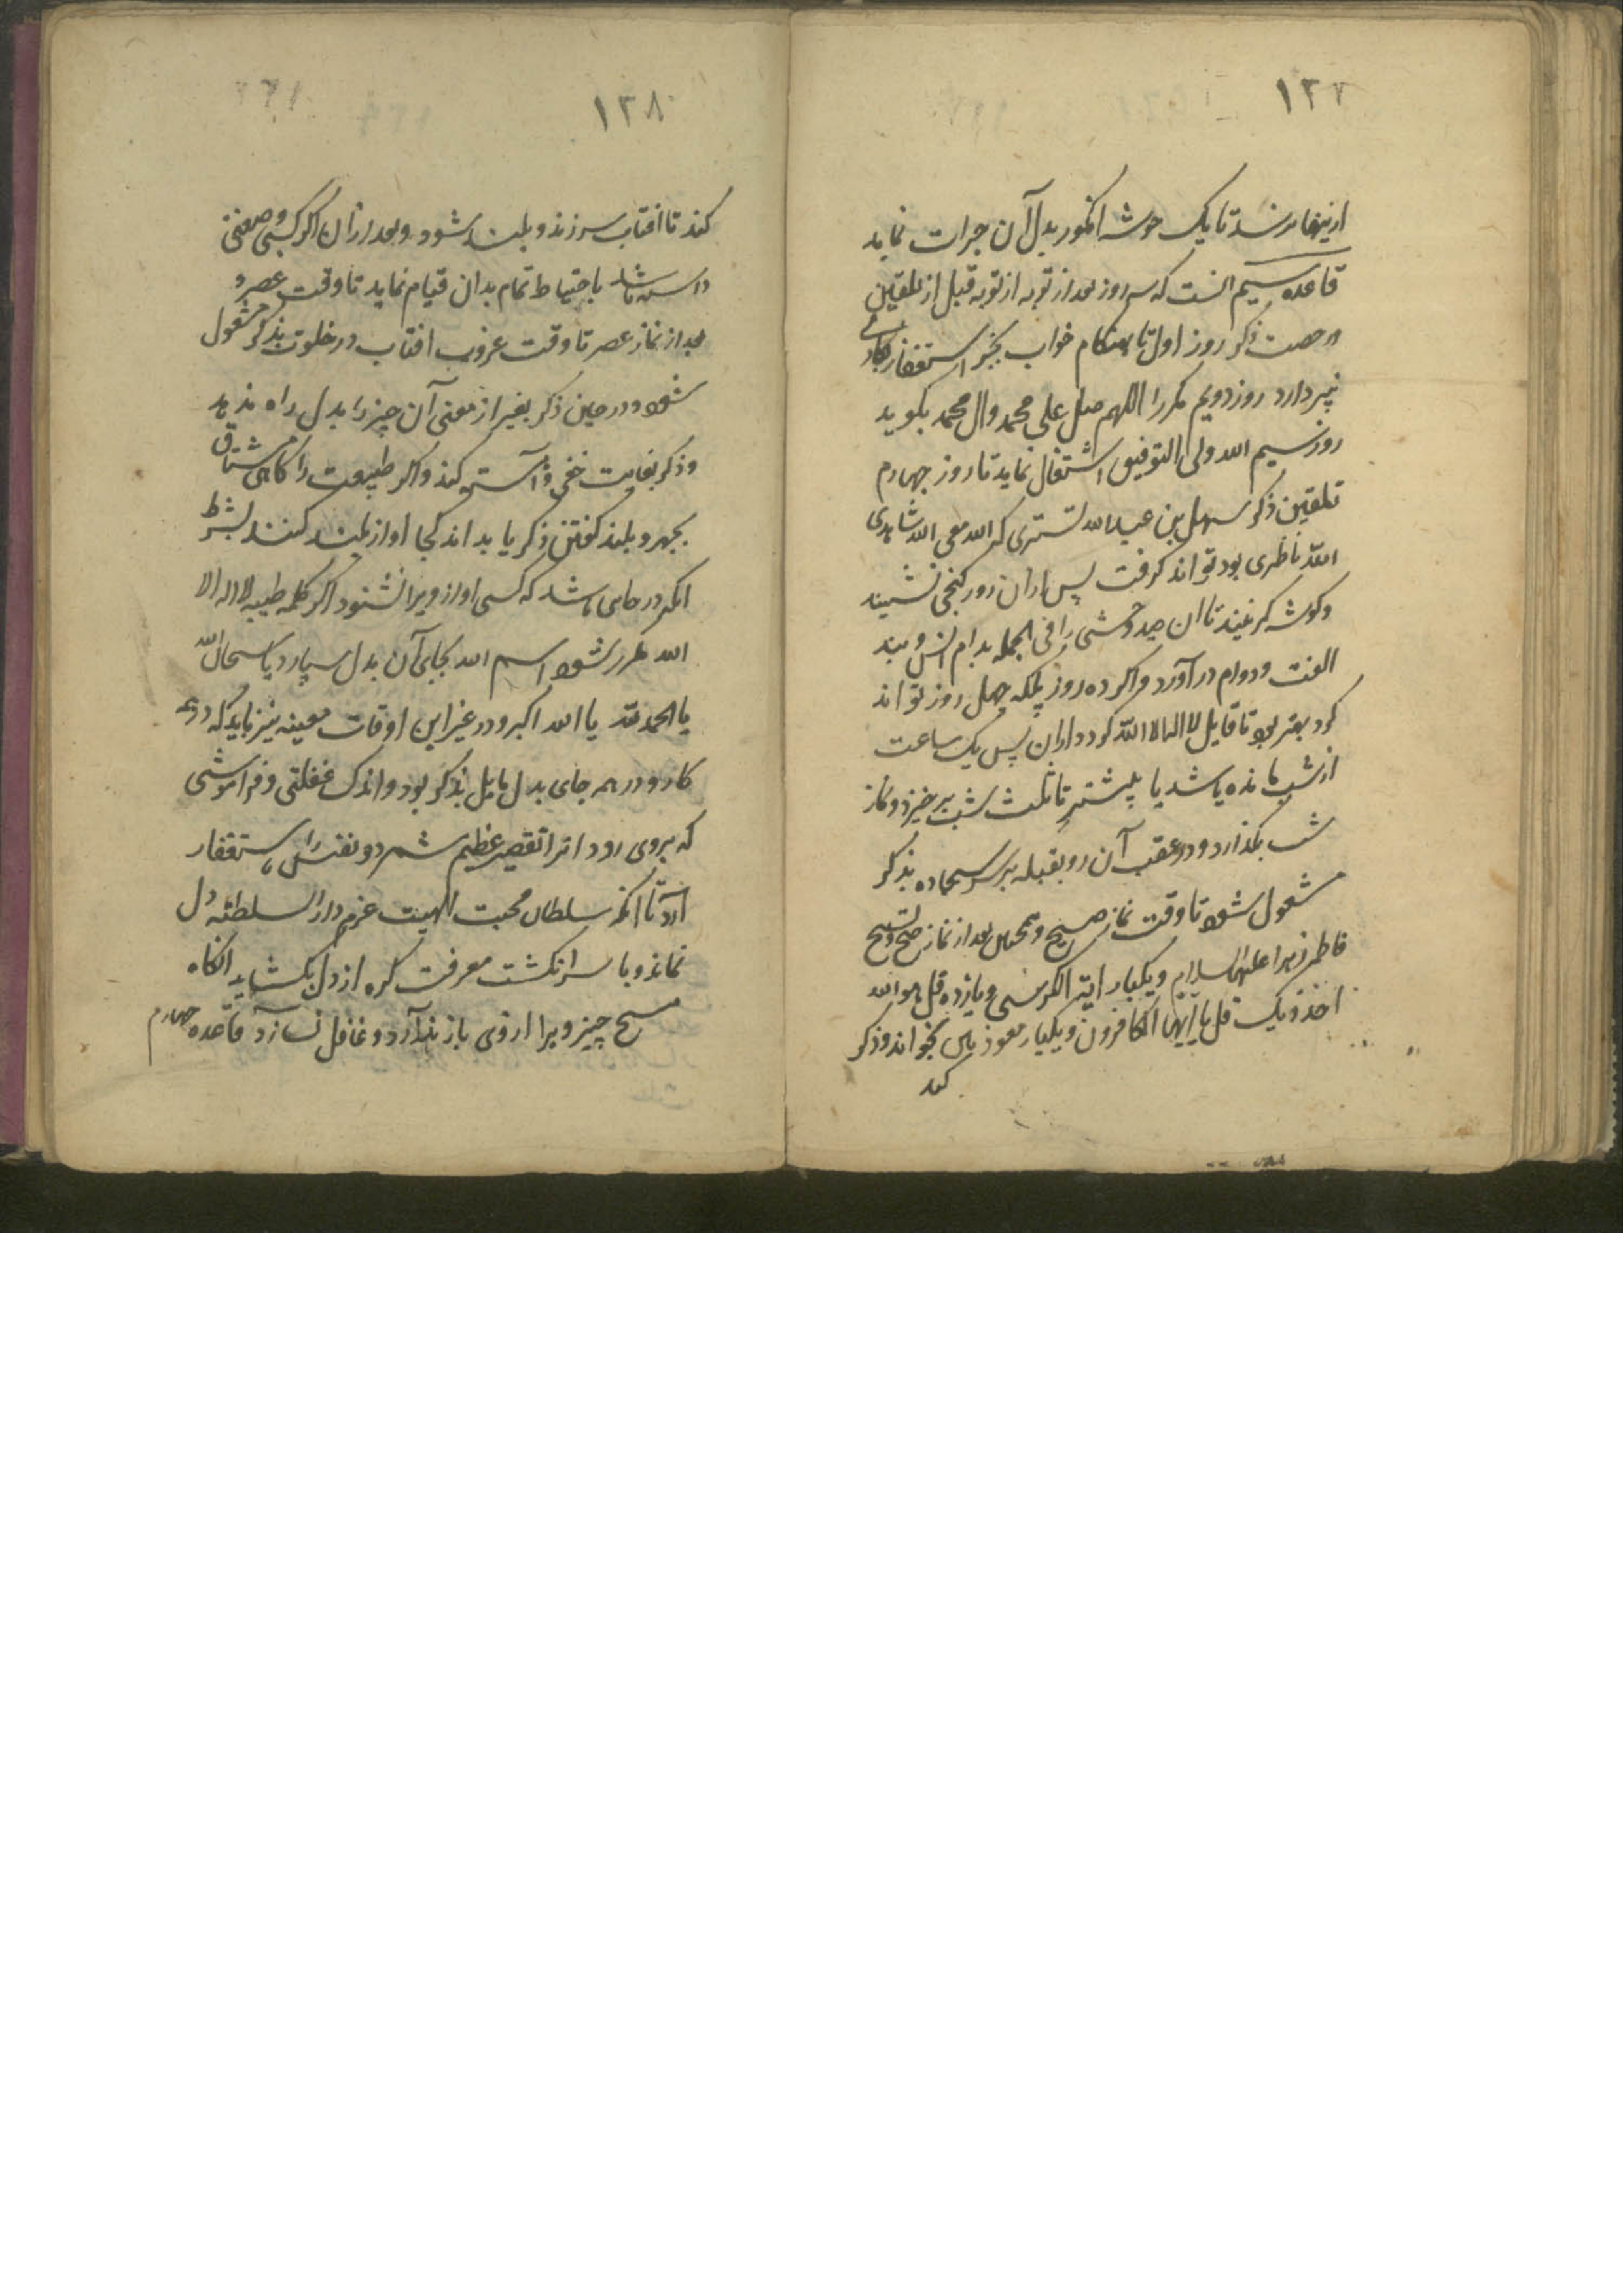 ۱۳۷
ازینها نرسد تا یک خوشه انکور بدل آن جرات نماید
قاعده سیم انست که سه روز بعد از توبه از توبه قبل از تلقین
رخصت ذکر روز اول تا هنکام خواب بجز استغفار بکاری
نپردارد روز دویم مکررا اللهم صل علی محمد وال محمد بکوید
روز سیم الله ولی التوفیق اشتغال نماید تا روز چهارم
تلقین ذکر سهل بن عبدالله تستری که الله معی الله شاهدی
الله ناظری بود تواند کرفت پس ازان روز کنجی نشیند
وکوشه کزیند تا ان صید وحشی را فی الجمله بدام انس و بند
الفت و دوام در آورد واکر ده روز بلکه چهل روز تواند
کرد بهتر بود تا قایل لا اله الا الله کردد وازان پس یک ساعت
از شب مانده باشد یا پیشتر تا ثلث شب برخیزد و نماز
شب بکذارد و در عقب آن رو بقبله بر سر سجاده بذکر
مشغول شود تا وقت نماز صبح و همچنین بعد از نماز صبح و تسبیح
فاطمه زهرا علیها السلام ویکبار ایة الکرسی و یازده قل هو الله
احد و یک قل یا ایها الکافرون و یکبار معوذتین بخواند و ذکر
کند
۱۳۸
کند تا افتاب سر زند و بلند شود و بعد ازان اکر کسبی و صنعتی
داشته باشد باحتیاط تمام بدان قیام نماید تا وقت عصر و
بعد از نماز عصر تا وقت غروب افتاب در خلوت بذکر مشغول
شود و در حین ذکر بغیر از معنی آن چیز را بدل راه ندهد
و ذکر بغایت خفی و آهسته کند و اکر طبیعت را کاهی مشتاق
بجهر و بلند کفتن ذکر یا بداند کجا اواز بلند کنند بشرط
انکه در جایی باشد که کسی اواز ویرا نشنود اکر کلمه طیبه لا اله الا
الله مکرر شود اسم الله بجای آن بدل سپارد یا سبحان الله
یا الحمد لله یا الله اکبر و در غیر این اوقات معینه نیز باید که در همه
کار و در همه جای بدل مایل بذکر بود و اندک غفلتی و فراموشی
که بروی رود انرا تقصیر عظیم شمرد و نفس را باستغفار
آرد تا انکه سلطان محبت الهیت عزم دار السلطنه دل
نماید و با سر انکشت معرفت کره از دل بکشاید انکاه
هیچ چیز ویرا از وی باز ندارد و غافل نسازد قاعده چهارم